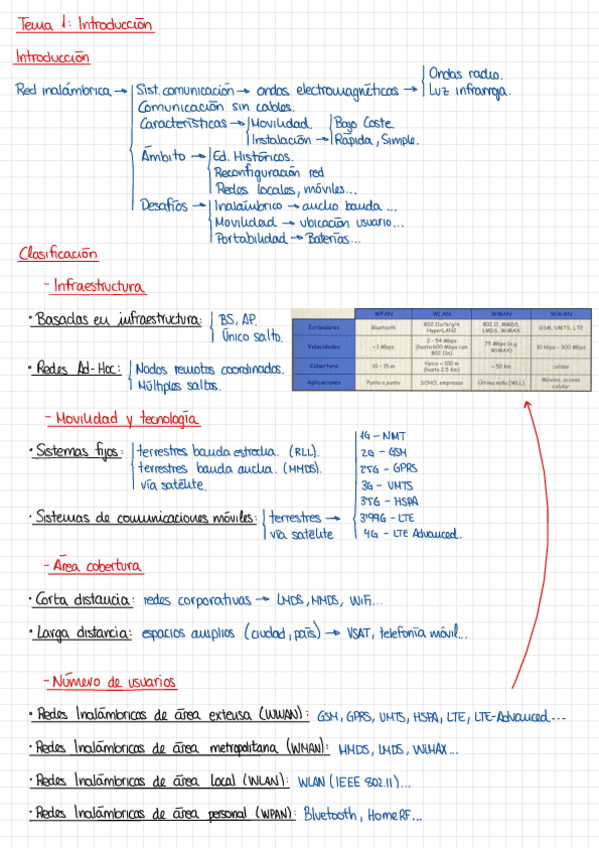 Tema 1: Introducción
Introducción
Red inalámbrica → Sist. comunicación → ondas electromagnéticas → Ondas radio.
Luz infrarroja.
Comunicación sin cables.
Características → Movilidad. Bajo Coste
Instalación → Rápida, Simple.
Ámbito → Ed. Históricos.
Reconfiguración red
Redes locales, móviles...
Desafíos → Inalámbrico → ancho banda ...
Movilidad → ubicación usuario...
Portabilidad → Baterías...
Clasificación
- Infraestructura
• Basadas en infraestructura: BS, AP.
Único salto.
• Redes Ad-Hoc: Nodos remotos coordinados.
Múltiples saltos.
WPAN WLAN WMAN WWAN
Estándares Bluetooth 802.11a/b/g/n HyperLAN2 802.11, MMDS, LMDS, WiMAX GSM, UMTS, LTE
Velocidades <1 Mbps 2 - 54 Mbps (hasta 600 Mbps con 802.11n) 75 Mbps (e.g WiMAX) 10 kbps - 300 Mbps
Cobertura 10 - 15 m típica < 100 m (hasta 2.5 Km) < 50 Km celdas
Aplicaciones Punto a punto SOHO, empresas Última milla (WLL) Móviles, acceso celular
- Movilidad y tecnología
• Sistemas fijos: terrestres banda estrecha. (RLL).
terrestres banda ancha. (MMDS).
vía satélite.
• Sistemas de comunicaciones móviles: terrestres →
vía satélite
1G - NMT
2G - GSM
2'5G - GPRS
3G - UMTS
3'5G - HSPA
3'99G - LTE
4G - LTE Advanced..
- Área cobertura
• Corta distancia: redes corporativas → LMDS, MMDS, WiFi...
• Larga distancia: espacios amplios (ciudad, país) → VSAT, telefonía móvil...
- Número de usuarios
• Redes Inalámbricas de área extensa (WWAN): GSM, GPRS, UMTS, HSPA, LTE, LTE-Advanced...
• Redes Inalámbricas de área metropolitana (WMAN): MMDS, LMDS, WiMAX...
• Redes Inalámbricas de área Local (WLAN): WLAN (IEEE 802.11)...
• Redes Inalámbricas de área personal (WPAN): Bluetooth, HomeRF...